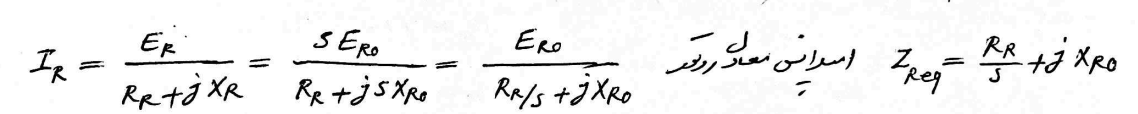 I_R = E_R / (R_R + jX_R) = S E_R0 / (R_R + jSX_R0) = E_R0 / (R_R/s + jX_R0) امپدانس معادل روتور Z_Req = R_R/s + jX_R0